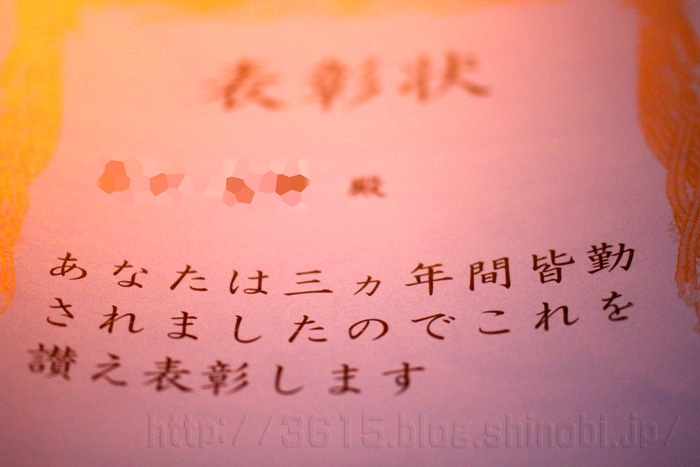 表彰状
殿
あなたは三ヵ年間皆勤
されましたのでこれを
讃え表彰します
http://3615.blog.shinobi.jp/